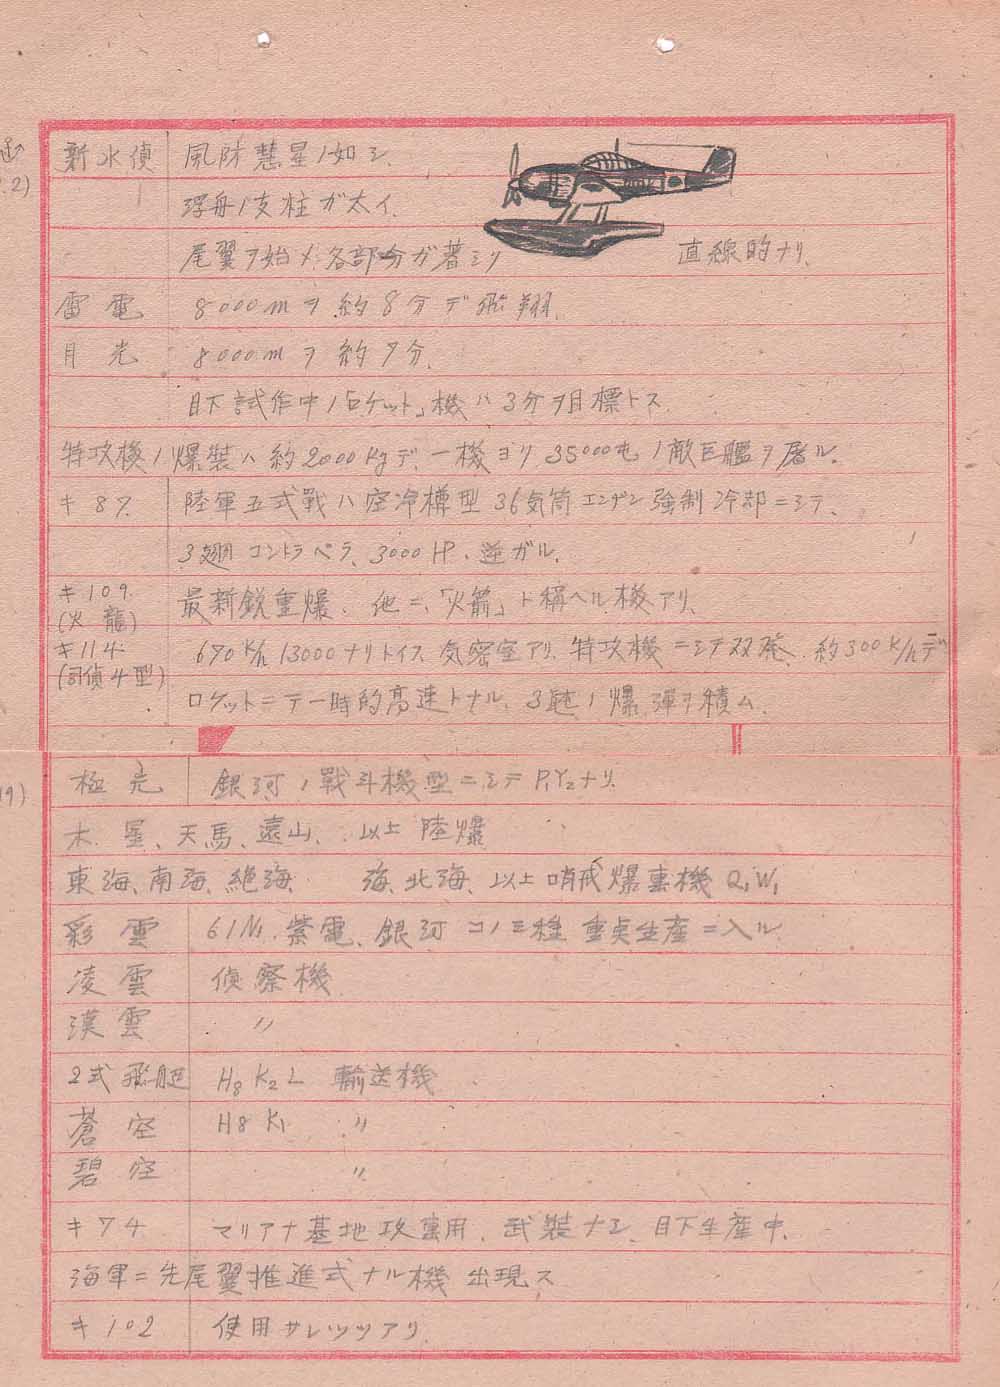 新水偵 風防慧星ノ如シ.
浮舟ノ支柱ガ太イ.
尾翼ヲ始メ各部分ガ著シク 直線的ナリ.
雷電 8000mヲ約8分デ飛翔.
月光 8000mヲ約9分.
目下試作中ノ「ロケット」機ハ3分ヲ目標トス
特攻機ノ爆装ハ約2000Kgデ、一機ヨリ35000屯ノ敵巨艦ヲ屠ル.
キ87. 陸軍五式戦ハ空冷樽型36気筒エンヂン強制冷却ニシテ、
3翅コントラペラ、3000HP、逆ガル.
キ109. 最新鋭重爆、他ニ、「火箭」ト称ヘル機アリ、
(火龍)
キ114. 670K/h 13000ナリトイス 気密室アリ. 特攻機ニシテ双発、約300K/hデ
(司偵4型)
ロケットニテ一時的高速トナル、3屯ノ爆弾ヲ積ム.
極光 銀河ノ戰斗機型ニシテP1Y2ナリ.
木星、天馬、遠山、以上陸爆
東海、南海、絶海 海、北海、以上哨戒爆撃機 Q1W1
彩雲 61N1. 紫電、銀河コノ三種重点生産ニ入ル
凌雲 偵察機
漢雲 〃
2式飛艇 H8K2L 輸送機
蒼空 H8K1 〃
碧空 〃
キ74 マリアナ基地攻撃用. 武装ナシ、目下生産中.
海軍ニ先尾翼推進式ナル機出現ス
キ102 使用サレツツアリ.